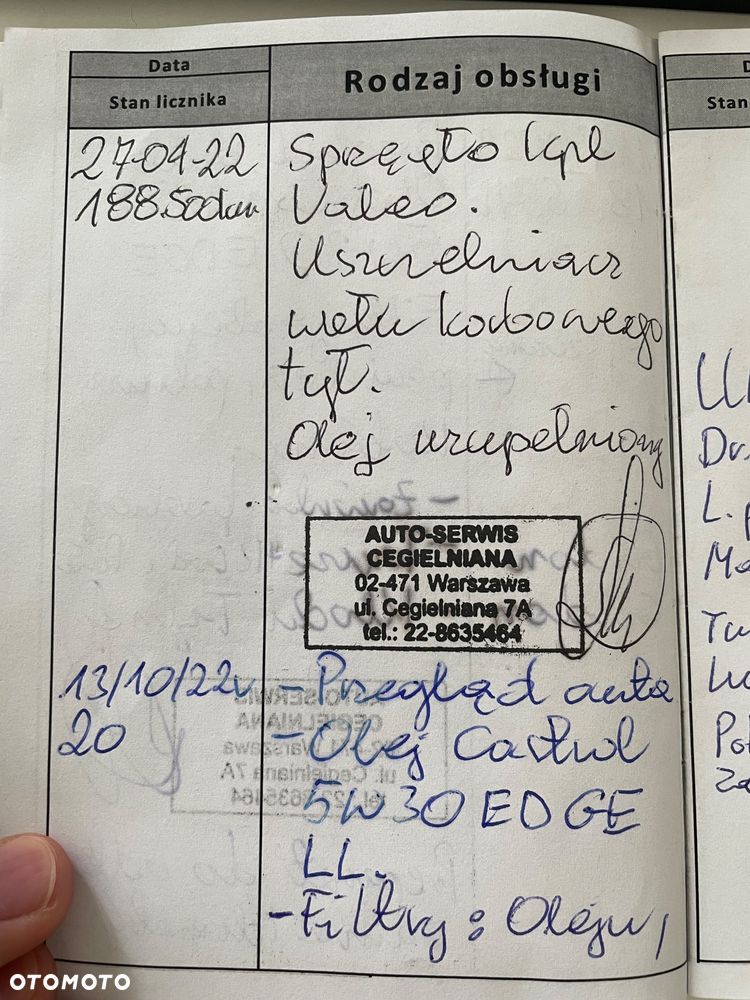 Data
Stan licznika
Rodzaj obsługi
27-01-22
188.500km
Sprzęgło kpl
Valeo.
Uszczelniacz
wałku korbowego
tył.
Olej uzupełniony
AUTO-SERWIS
CEGIELNIANA
02-471 Warszawa
ul. Cegielniana 7A
tel.: 22-8635464
13/10/22r
20
- Przegląd auta
- Olej Castrol
5W30 EDGE
LL.
- Filtry: Oleju,
D
Stan
Dr
L. p
Po
za
OTOMOTO